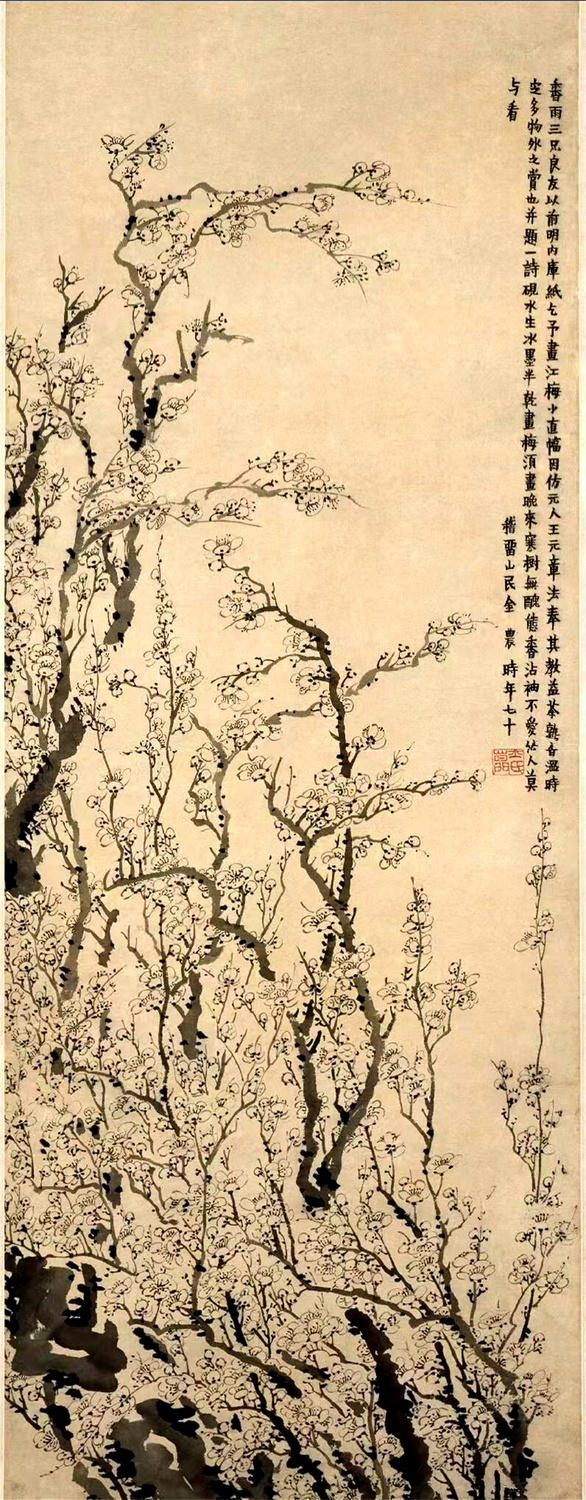 香雨三兄良友以前明内庫紙乞予畫江梅小直幅因仿元人王元章法奉其教益茶熟香溫時
定多物外之賞也并題一詩硯水生冰墨半乾畫梅須畫晚來寒樹無醜態香沾袖不愛花人莫
与看
稽畱山民金農時年七十